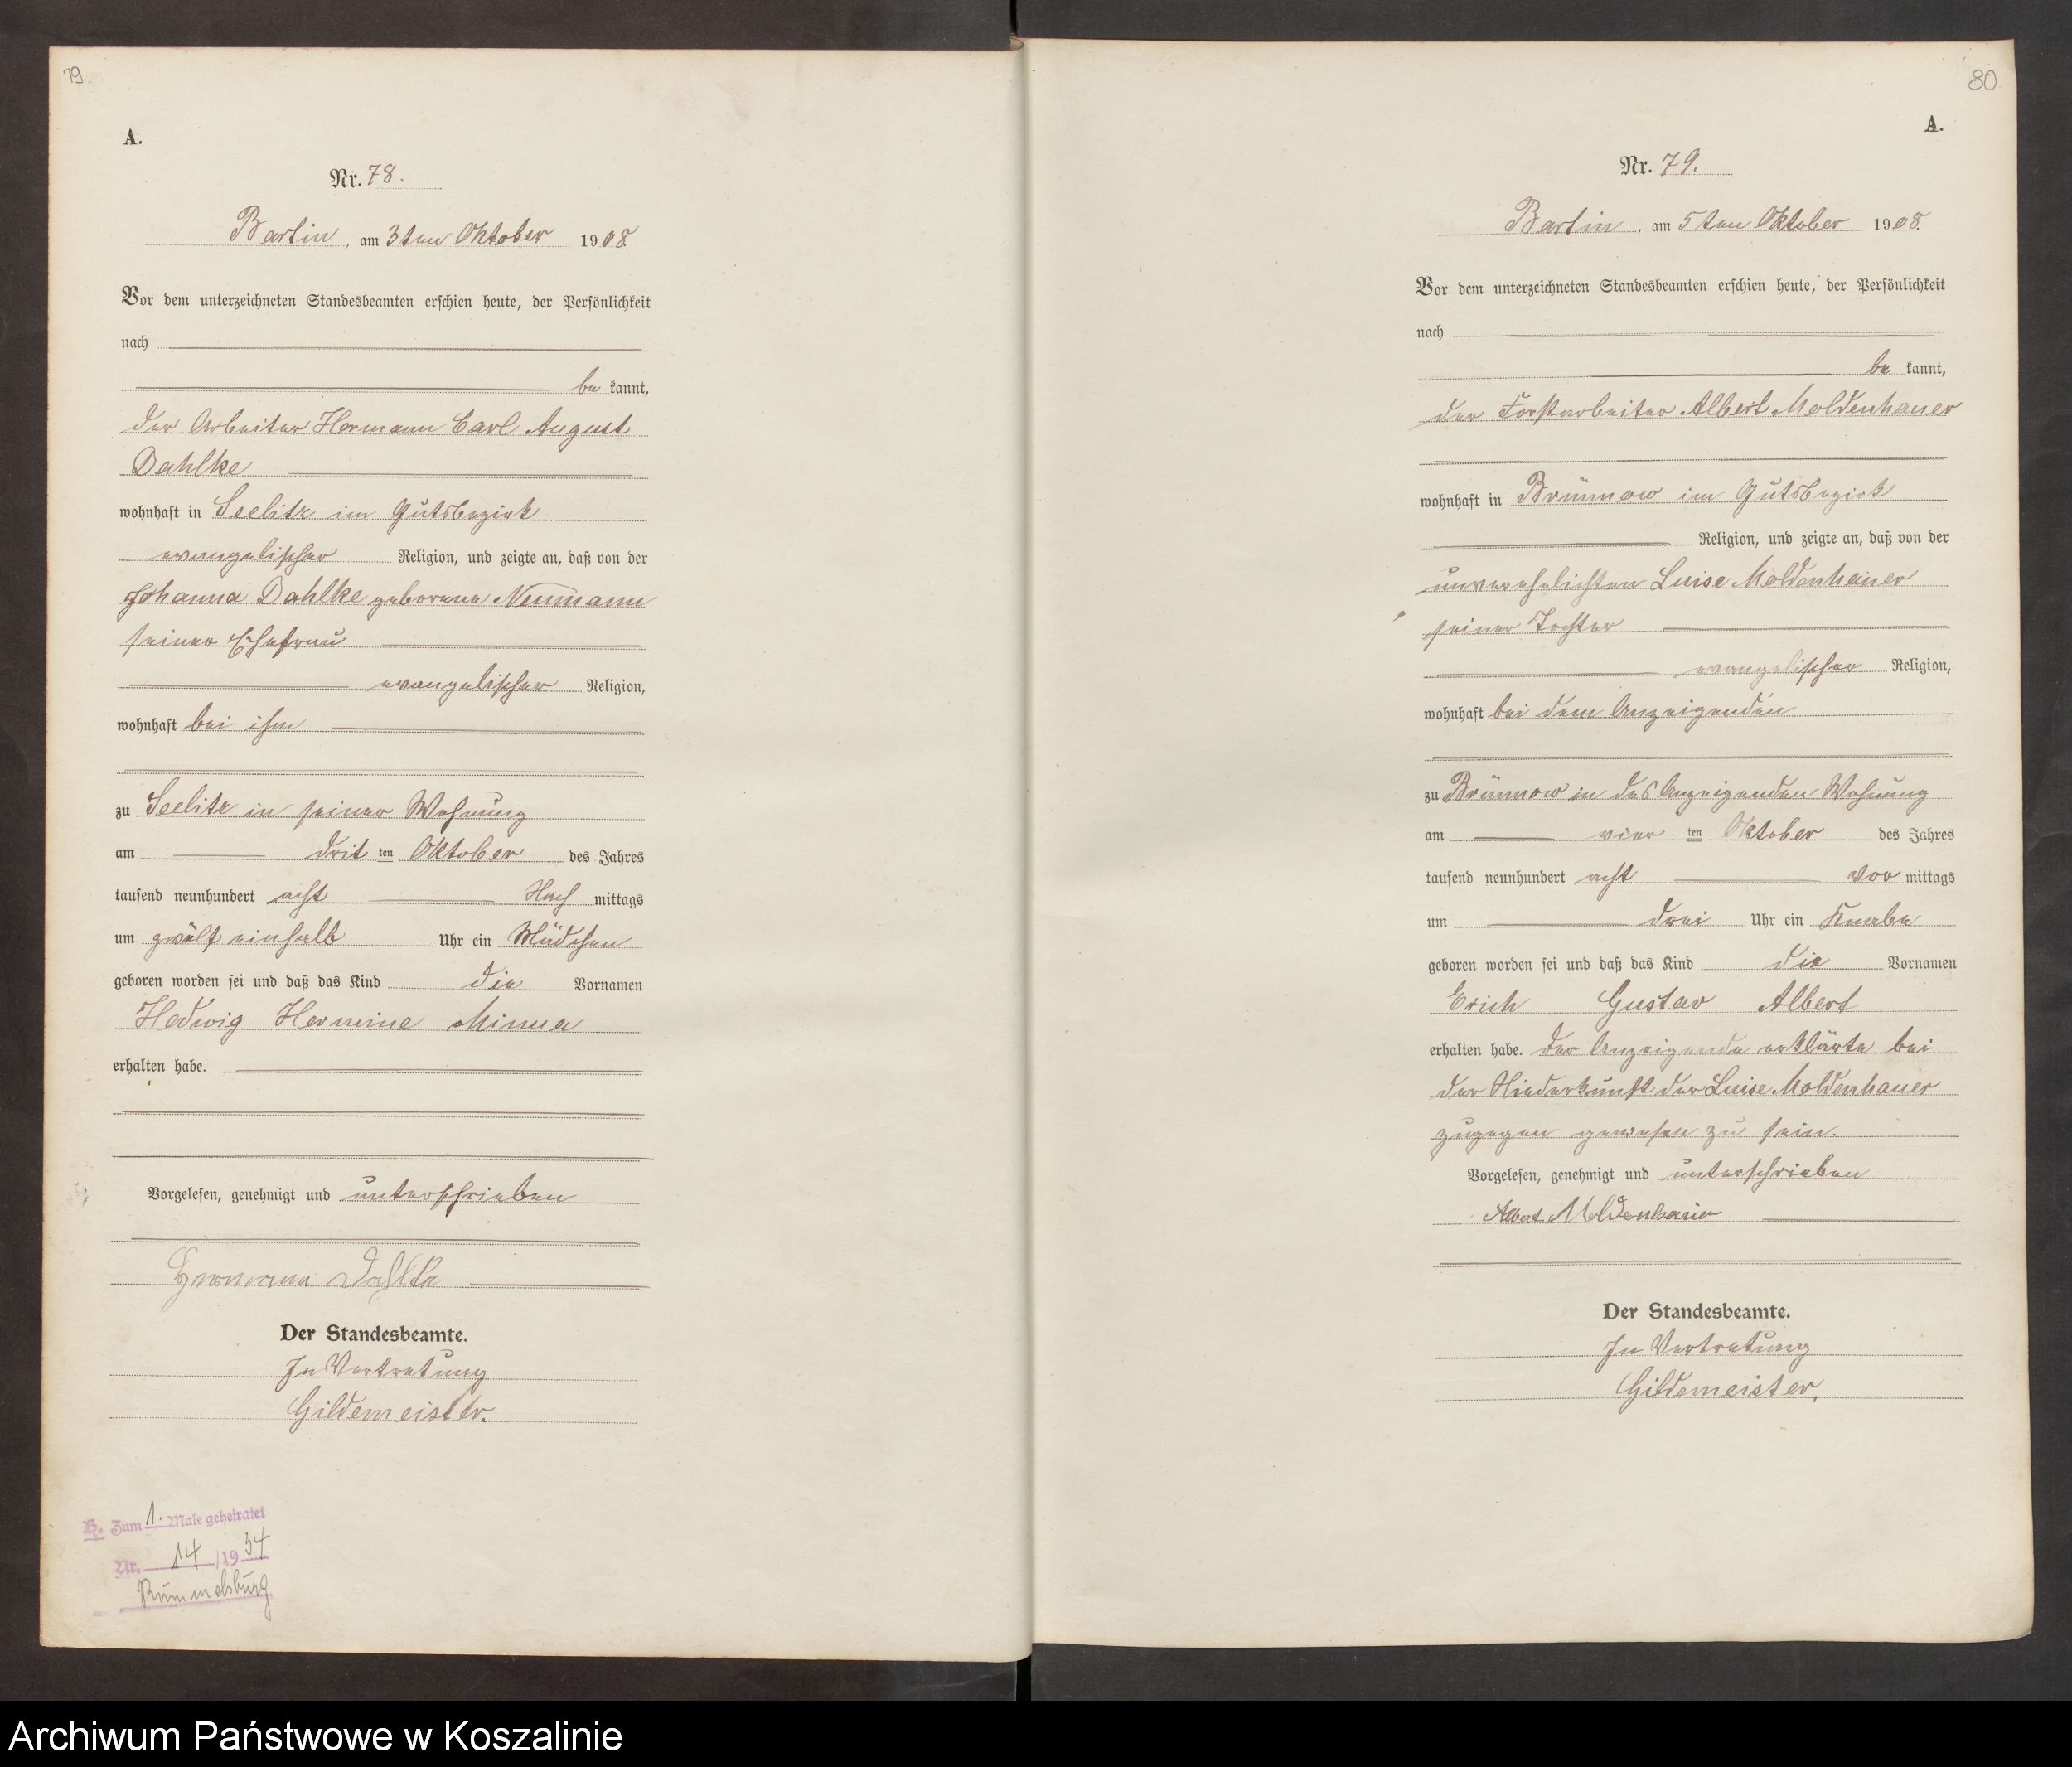 79.
A.
Nr. 78.
Bartin, am 3ten Oktober 1908.
Vor dem unterzeichneten Standesbeamten erschien heute, der Persönlichkeit
nach
be kannt,
der Arbeiter Hermann Carl August
Dahlke
wohnhaft in Seelitz im Gutsbezirk
evangelischer Religion, und zeigte an, daß von der
Johanna Dahlke geborene Neumann
seiner Ehefrau
evangelischer Religion,
wohnhaft bei ihm
zu Seelitz in seiner Wohnung
am drit ten Oktober des Jahres
tausend neunhundert acht Nach mittags
um zwölf einhalb Uhr ein Mädchen
geboren worden sei und daß das Kind die Vornamen
Hedwig Hermine Minna
erhalten habe.
Vorgelesen, genehmigt und unterschrieben
Hermann Dahlke
Der Standesbeamte.
In Vertretung
Gildemeister.
H. Zum 1. Male geheiratet
Nr. 14 /1934
Rummelsburg
80
A.
Nr. 79.
Bartin, am 5ten Oktober 1908.
Vor dem unterzeichneten Standesbeamten erschien heute, der Persönlichkeit
nach
be kannt,
der Forstarbeiter Albert Moldenhauer
wohnhaft in Brünnow im Gutsbezirk
Religion, und zeigte an, daß von der
unverehelichten Luise Moldenhauer
seiner Tochter
evangelischer Religion,
wohnhaft bei dem Anzeigenden
zu Brünnow in des Anzeigenden Wohnung
am vier ten Oktober des Jahres
tausend neunhundert acht Vor mittags
um drei Uhr ein Knabe
geboren worden sei und daß das Kind die Vornamen
Erich Gustav Albert
erhalten habe. Der Anzeigende erklärte bei
der Niederkunft der Luise Moldenhauer
zugegen gewesen zu sein.
Vorgelesen, genehmigt und unterschrieben
Albert Moldenhauer
Der Standesbeamte.
In Vertretung
Gildemeister.
Archiwum Państwowe w Koszalinie